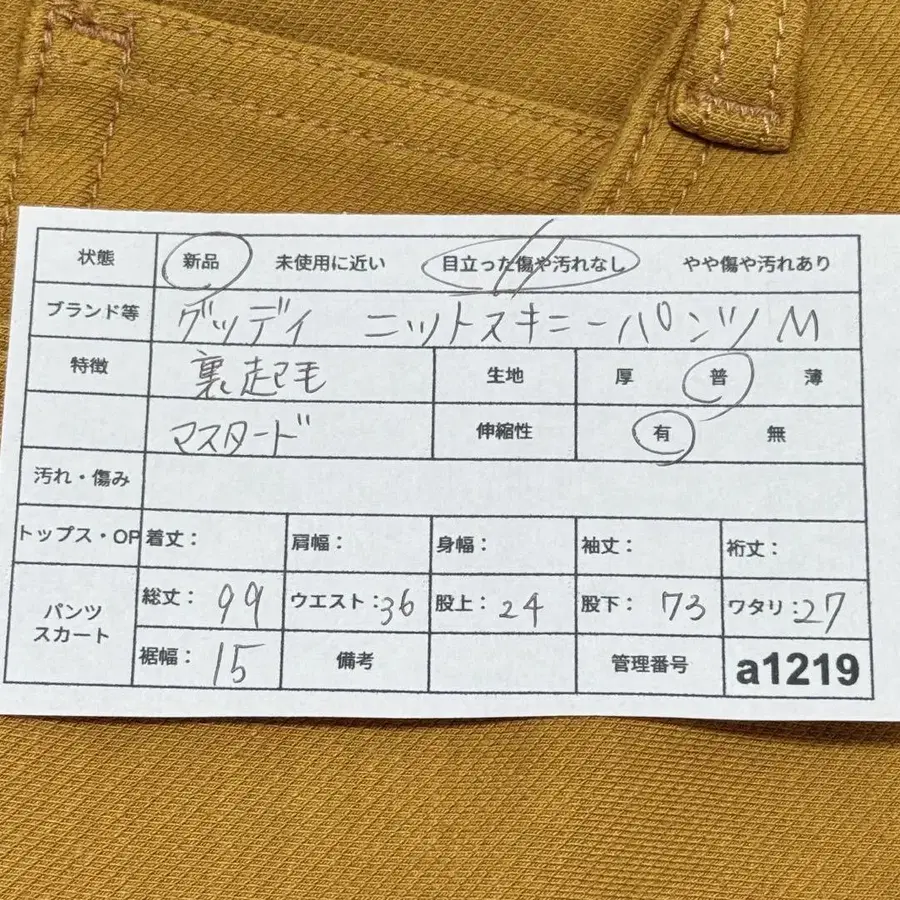 状態 新品 未使用に近い 目立った傷や汚れなし やや傷や汚れあり
ブランド等 グッディ ニットスキニーパンツ M
特徴 裏起毛 生地 厚 普 薄
マスタード 伸縮性 有 無
汚れ・傷み
トップス・OP 着丈: 肩幅: 身幅: 袖丈: 裄丈:
パンツ スカート 総丈: 99 ウエスト: 36 股上: 24 股下: 73 ワタリ: 27
裾幅: 15 備考 管理番号 a1219